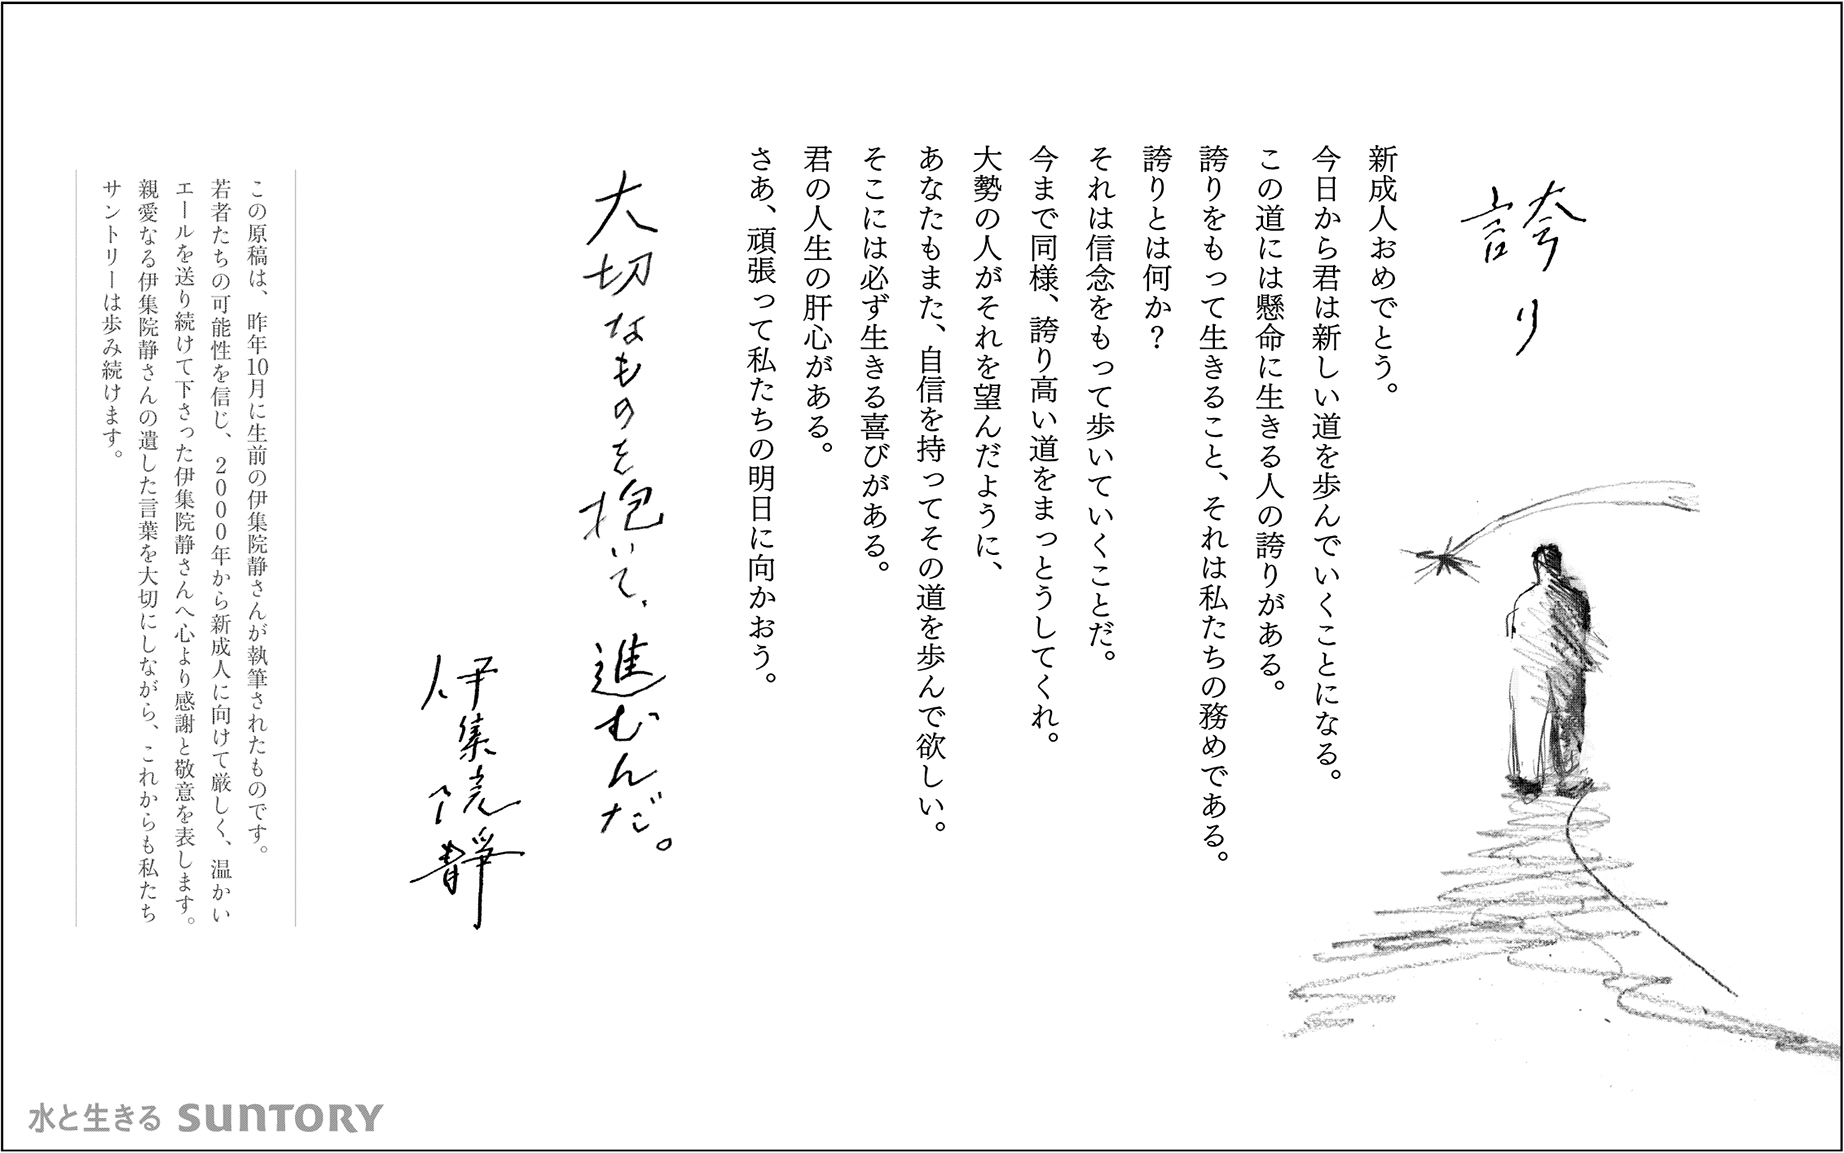 誇り
新成人おめでとう。
今日から君は新しい道を歩んでいくことになる。
この道には懸命に生きる人の誇りがある。
誇りをもって生きること、それは私たちの務めである。
誇りとは何か？
それは信念をもって歩いていくことだ。
今まで同様、誇り高い道をまっとうしてくれ。
大勢の人がそれを望んだように、
あなたもまた、自信を持ってその道を歩んで欲しい。
そこには必ず生きる喜びがある。
君の人生の肝心がある。
さあ、頑張って私たちの明日に向かおう。
大切なものを抱いて、進むんだ。
伊集院静
この原稿は、昨年10月に生前の伊集院静さんが執筆されたものです。
若者たちの可能性を信じ、2000年から新成人に向けて厳しく、温かい
エールを送り続けて下さった伊集院静さんへ心より感謝と敬意を表します。
親愛なる伊集院静さんの遺した言葉を大切にしながら、これからも私たち
サントリーは歩み続けます。
水と生きる SUNTORY